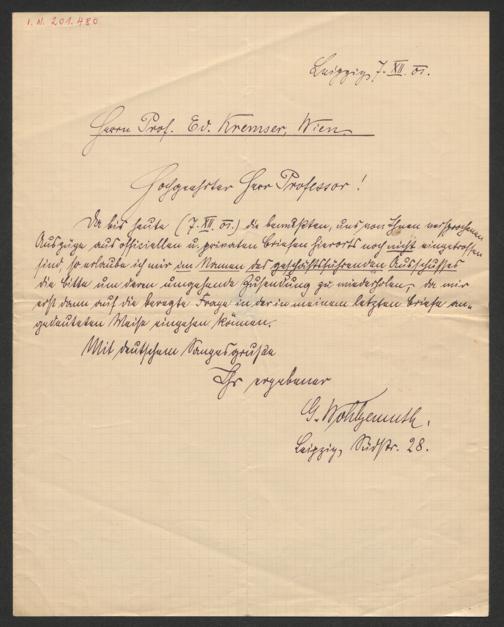 I. N. 201.480
Leipzig, 7. XII. 01.
Herrn Prof. Ed. Kremser, Wien
Hochgeehrter Herr Professor!
Da bis heute (7. XII. 01.) die bewußten, uns von Ihnen versprochenen
Auszüge aus officiellen u. privaten Briefen hierorts noch nicht eingetroffen
sind, so erlaube ich mir im Namen des geschäftsführenden Ausschusses
die Bitte um deren umgehende Zusendung zu wiederholen, da wir
erst dann auf die beregte Frage in der in meinem letzten Briefe an-
gedeuteten Weise eingehen können.
Mit deutschem Sangesgruße
Ihr ergebener
G. Wohlgemuth.
Leipzig, Südstr. 28.